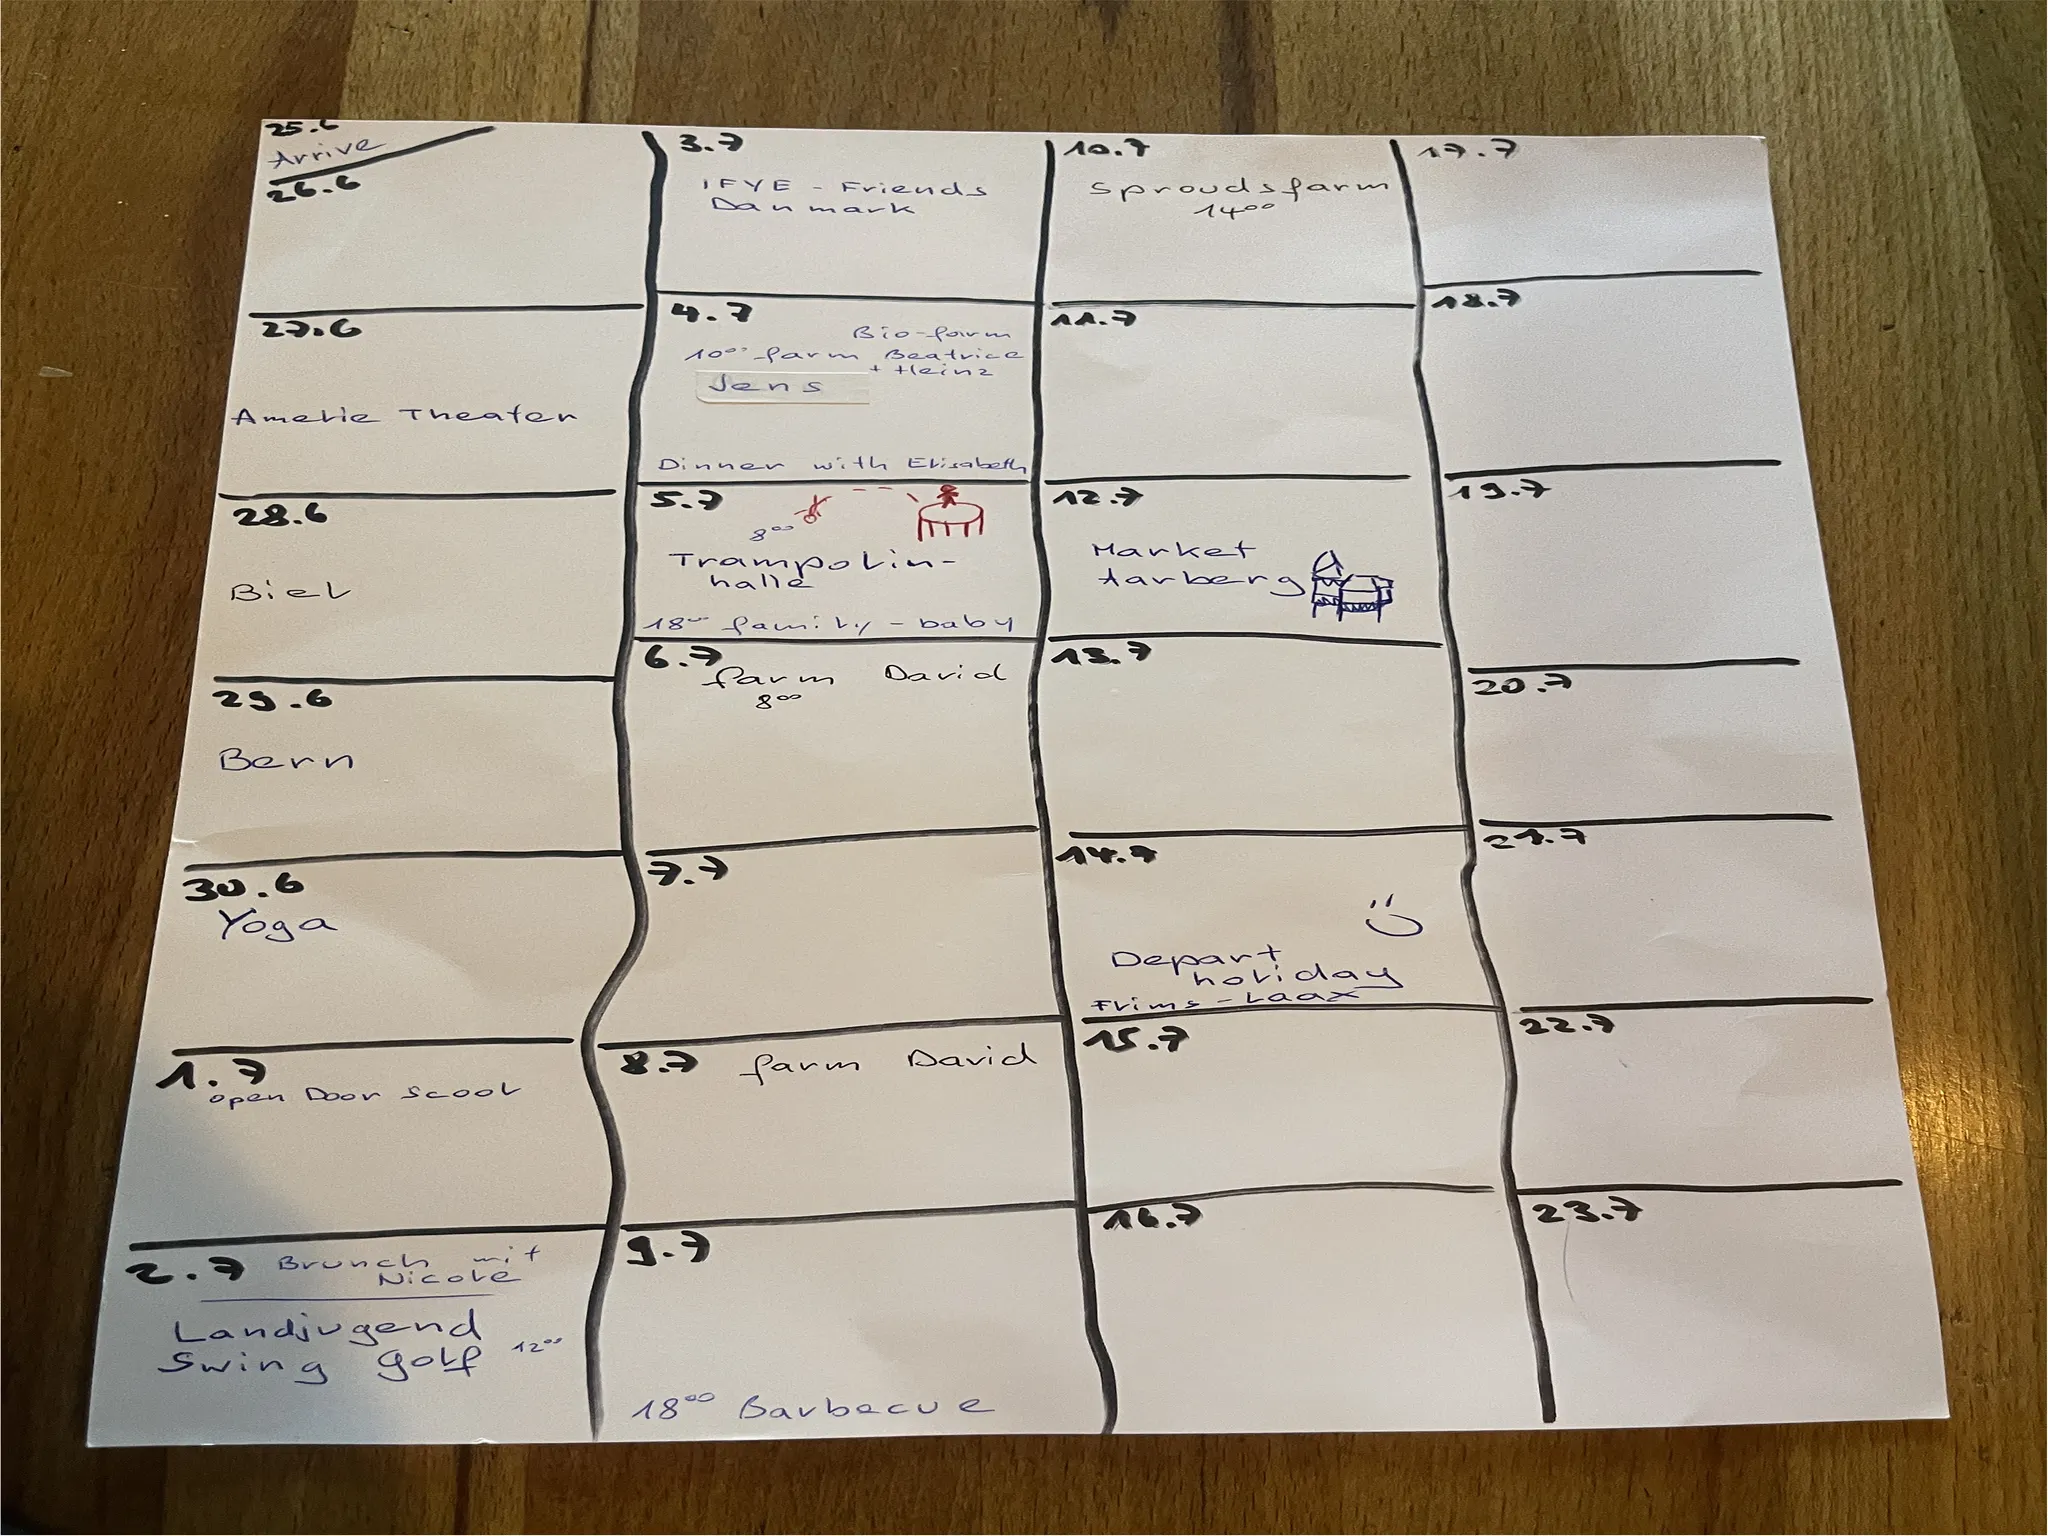 25.6
Arrive
26.6
27.6
Amelie Theater
28.6
Biel
29.6
Bern
30.6
Yoga
1.7
open Door scool
2.7 Brunch mit
Nicole
Landjugend
Swing golf 12⁰⁰
3.7
IFYE - Friends
Danmark
4.7
Bio-farm
10⁰⁰ farm Beatrice
+ Heinz
Jens
Dinner with Elisabeth
5.7
8⁰⁰
Trampolin-
halle
18⁰⁰ family - baby
6.7
farm David
8⁰⁰
7.7
8.7 farm David
9.7
18⁰⁰ Barbecue
10.7
Sproudsfarm
14⁰⁰
11.7
12.7
Market
Aarberg
13.7
14.7
Depart
holiday
Flims - Laax
15.7
16.7
17.7
18.7
19.7
20.7
21.7
22.7
23.7